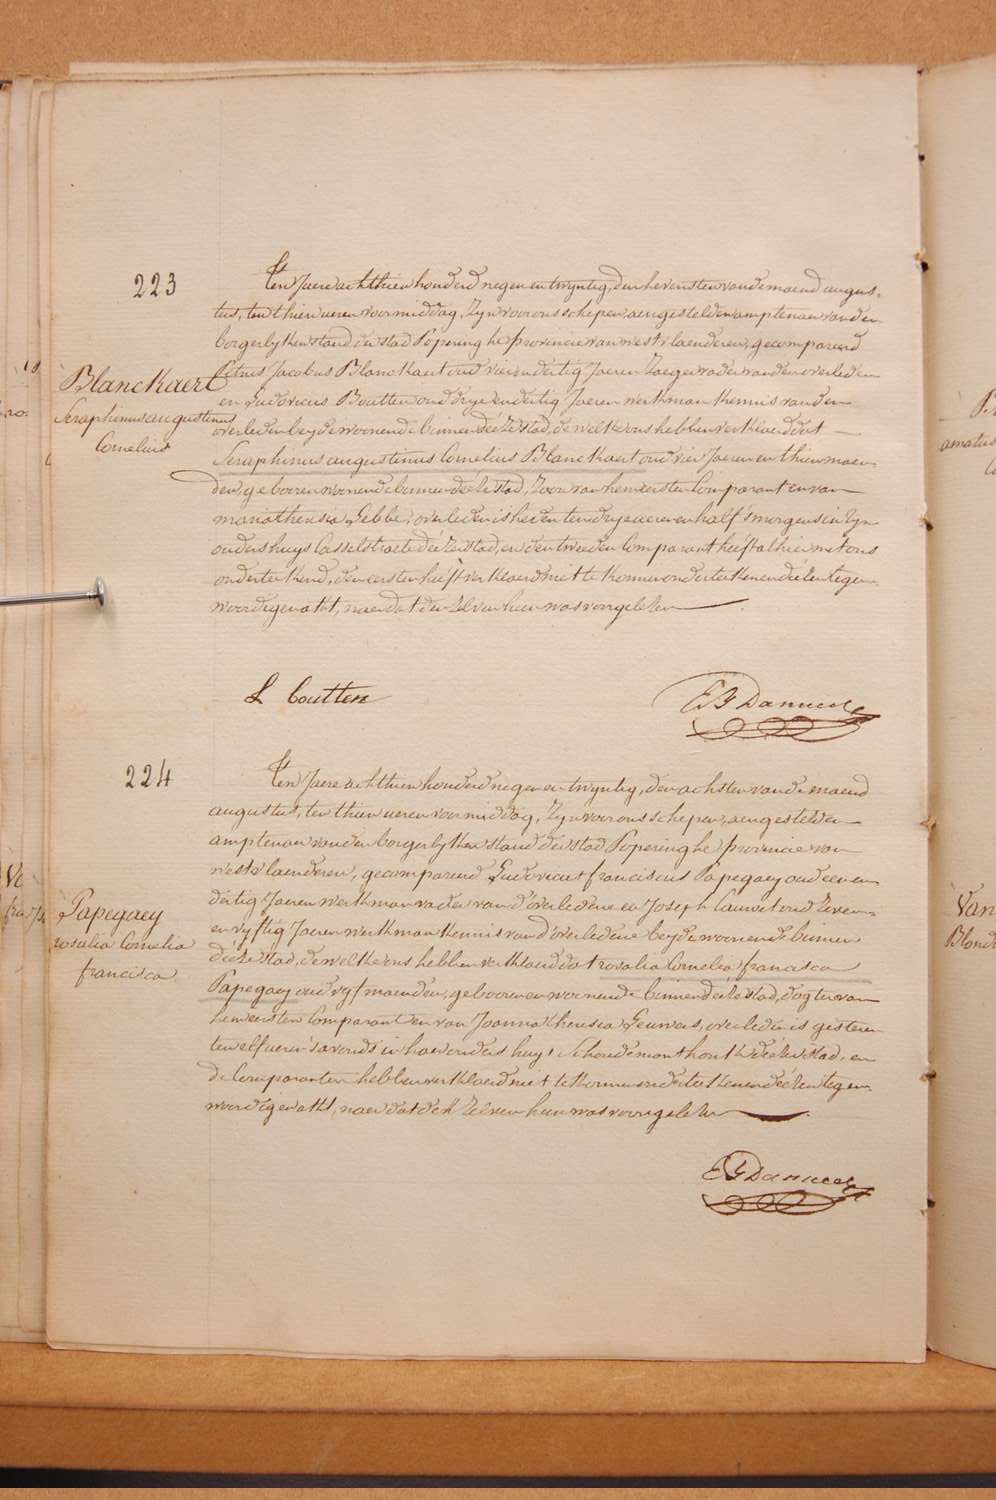 223
Blanckaert
Seraphinus augustinus
Cornelius
Ten Jaere achthien honderd negen en twyntig, den sevensten van de maend augus-
tus, ten thien ueren voormiddag, Zyn voor ons schepen, aengestelden amptenaer van den
borgerlyken stand der stad Poperinghe provincie van westvlaenderen, gecompareerd
Petrus Jacobus Blanckaert oud vier en dertig Jaeren Zaeger vader van den overleden
en Ludovicus Boutten oud drye en dertig Jaeren werkman kennis van den
overleden beyde woonende binnen deéze stad, de welke ons hebben verklaerd dat
Seraphinus augustinus Cornelius Blanckaert oud vier Jaeren en thien maen-
den, gebooren en woonende binnen deéze stad, Zoon van den eersten Comparant en van
maria theresia Gebbe, overleden is heden ten drye ueren en half 's morgens in Zyn
ouders huys Casselstraete deézer stad, en den tweeden Comparant heéft alhier met ons
onderteekend, den eersten heéft verklaerd niet te konnen onderteekenen deézen tegen-
woordigen akt, naer dat den zelven hun was voorgelezen
L boutten
E F Danneel
224
Papegaey
rosalia Cornelia
francisca
Ten Jaere achthien honderd negen en twyntig, den achsten van de maend
augustus, ten thien ueren voormiddag, Zyn voor ons schepen, aengestelden
amptenaer van den borgerlyken stand der stad Poperinghe provincie van
westvlaenderen, gecompareerd Ludovicus franciscus Papegaey oud een en
dertig Jaeren werkman vader van d'overledene en Joseph Cauwet oud Zeven-
en vyftig Jaeren werkman kennis van d'overledene beyde woonende binnen
deéze stad, de welke ons hebben verklaerd dat rosalia Cornelia francisca
Papegaey oud vyf maenden, gebooren en woonende binnen deéze stad, dogter van
den eersten Comparant en van Joanna theresia Leuwers, overleden is gisteren
ten elf ueren 's avonds in haer ouders huys Schoudemonthouk deézer stad, en
de Comparanten hebben verklaerd niet te konnen onderteekenen deézen tegen-
woordigen akt, naer dat den zelven hun was voorgelezen
E F Danneel